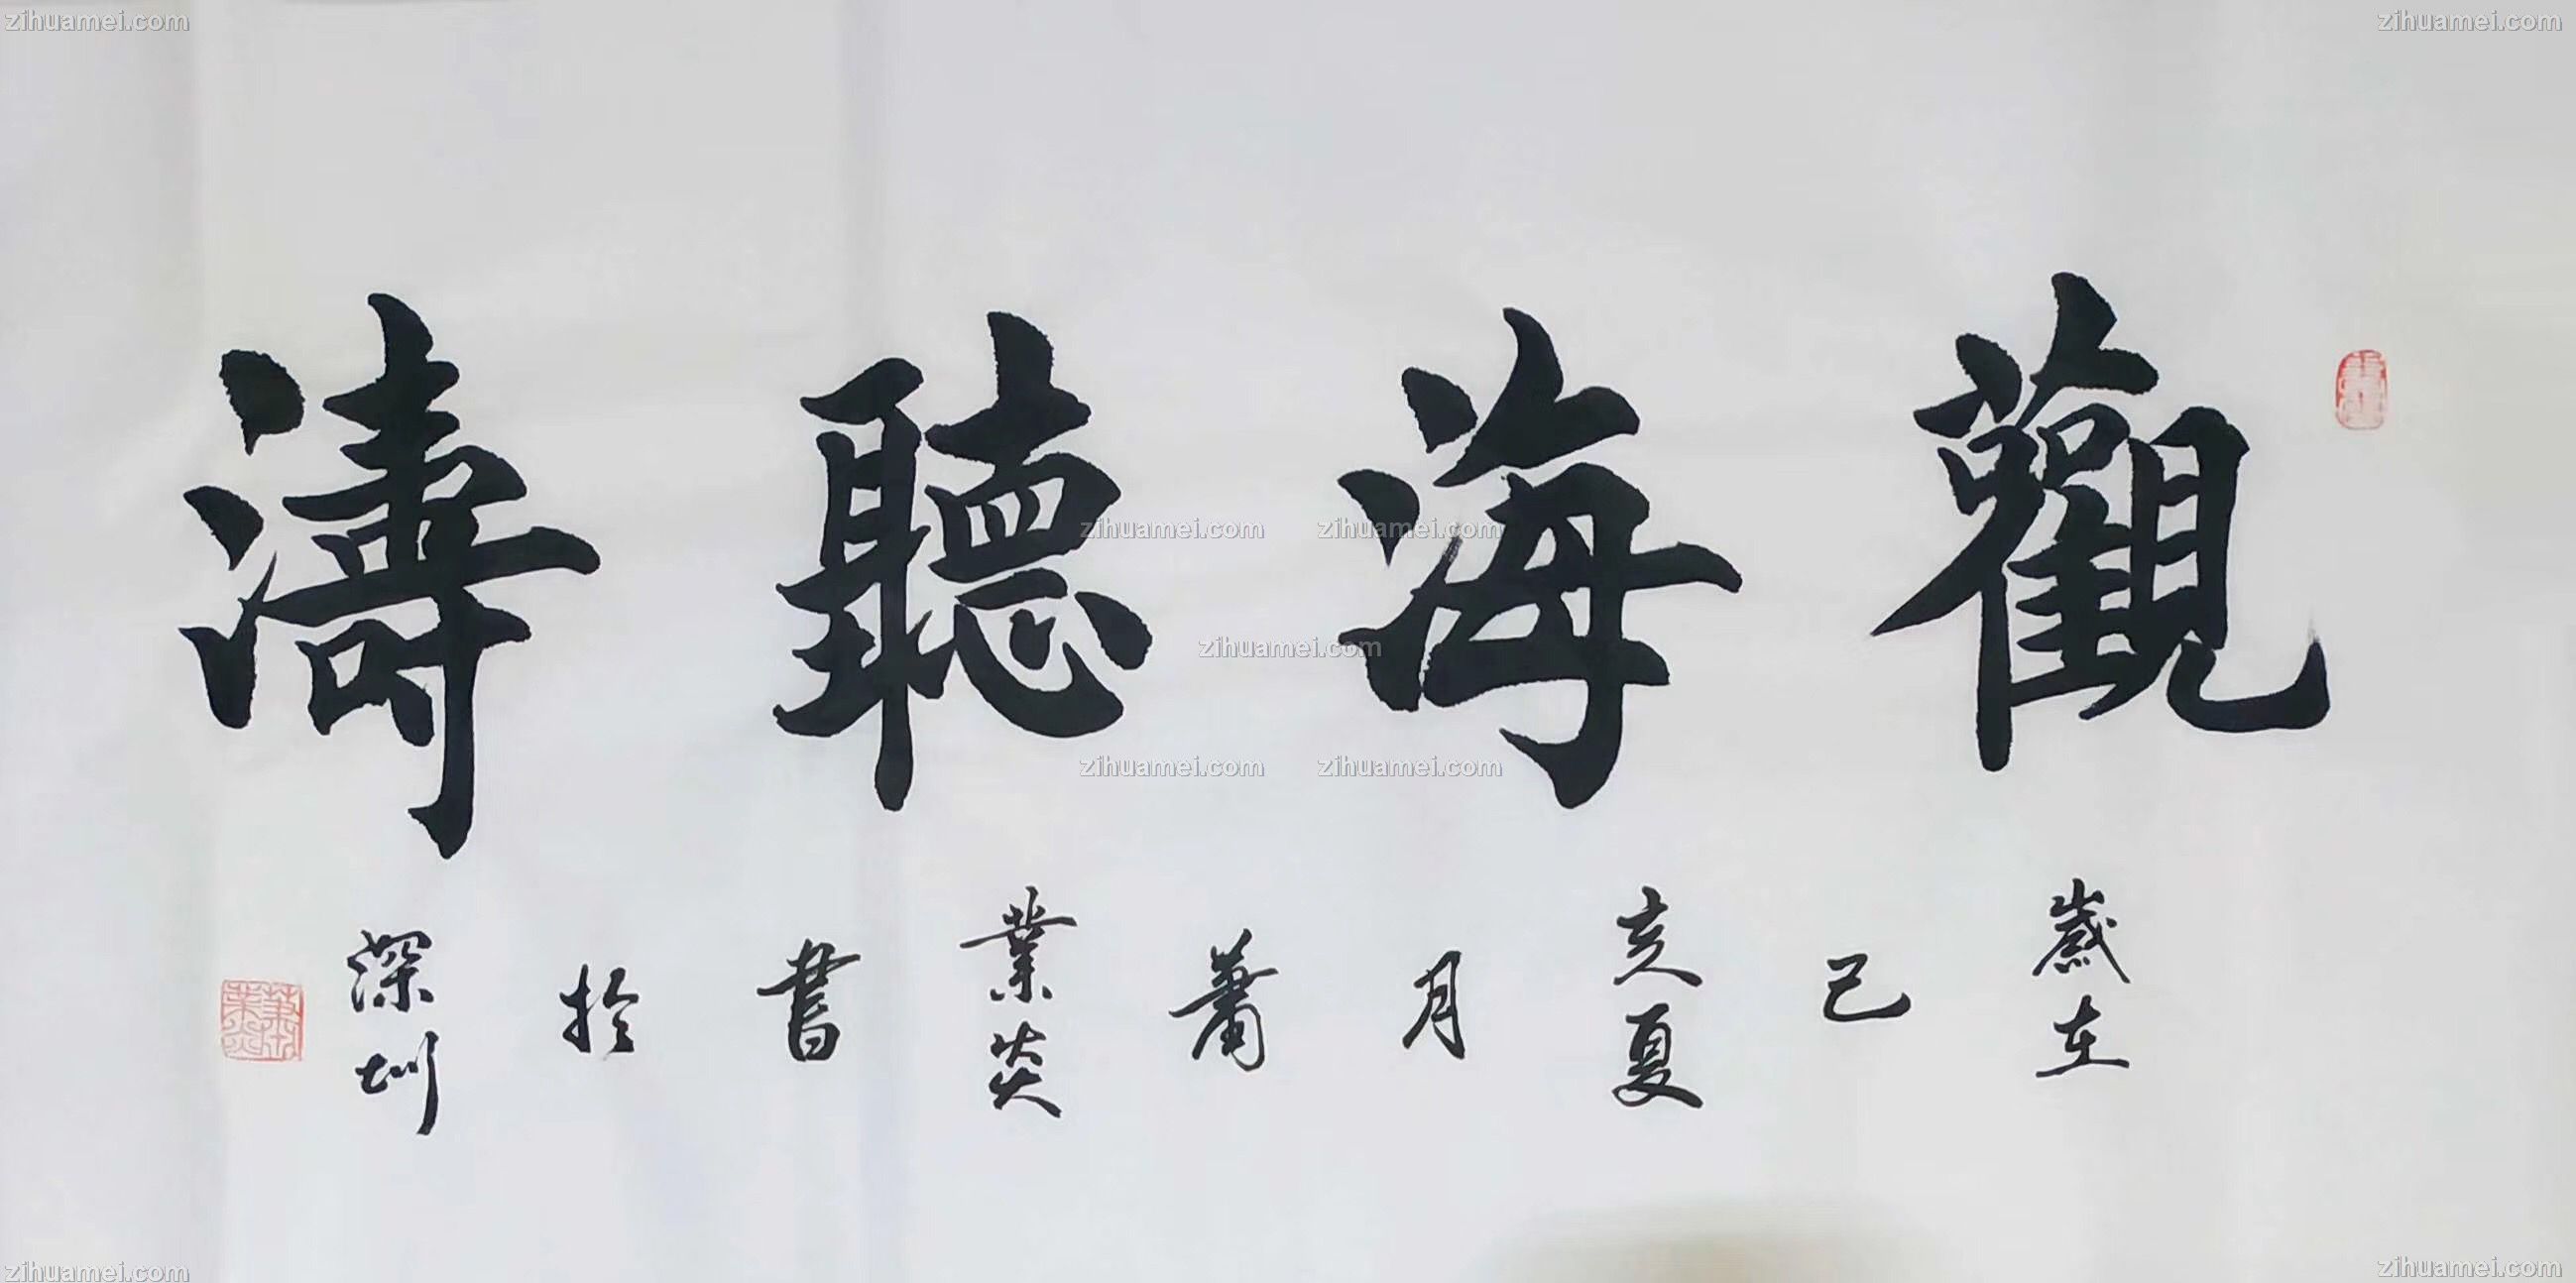 觀海聽濤
歲在己亥夏月蕭業炎書於深圳
zihuamei.com
zihuamei.com
zihuamei.com
zihuamei.com
zihuamei.com
zihuamei.com
zihuamei.com
zihuamei.com
zihuamei.com